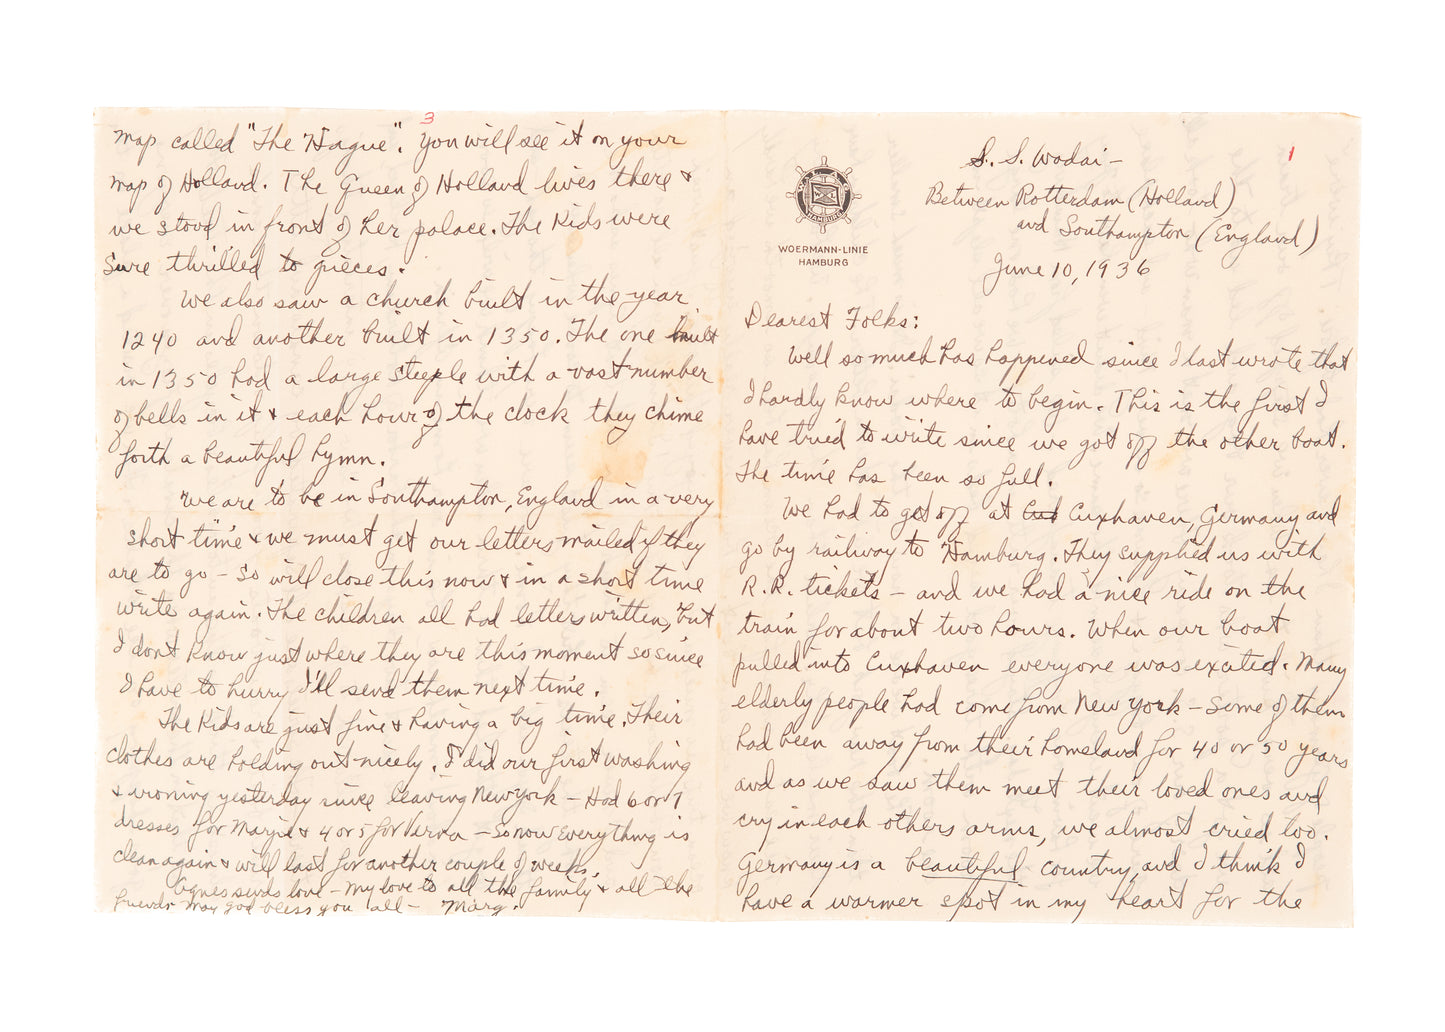 1
S. S. Wadai -
Between Rotterdam (Holland)
and Southampton (England)
June 10, 1936
W.A.L.A.G.
HAMBURG
WOERMANN-LINIE
HAMBURG
Dearest Folks:
Well so much has happened since I last wrote that
I hardly know where to begin. This is the first I
have tried to write since we got off the other boat.
The time has been so full.
We had to get off at Cux Cuxhaven, Germany and
go by railway to Hamburg. They supplied us with
R.R. tickets - and we had a nice ride on the
train for about two hours. When our boat
pulled into Cuxhaven everyone was excited. Many
elderly people had come from New York - Some of them
had been away from their homeland for 40 or 50 years
and as we saw them meet their loved ones and
cry in each others arms, we almost cried too.
Germany is a beautiful country, and I think I
have a warmer spot in my heart for the
3
map called "The Hague". You will see it on your
map of Holland. The Queen of Holland lives there &
we stood in front of her palace. The Kids were
sure thrilled to pieces.
We also saw a church built in the year
1240 and another built in 1350. The one built
in 1350 had a large steeple with a vast number
of bells in it & each hour of the clock they chime
forth a beautiful hymn.
We are to be in Southampton, England in a very
short time & we must get our letters mailed if they
are to go - So will close this now & in a short time
write again. The children all had letters written, but
I don't know just where they are this moment so since
I have to hurry I'll send them next time.
The Kids are just fine & having a big time. Their
clothes are holding out nicely. I did our first washing
& ironing yesterday since leaving New York - Had 6 or 7
dresses for Marjie & 4 or 5 for Verna - So now everything is
clean again & will last for another couple of weeks.
Agnes sends love - My love to all the family & all the
friends. May God bless you all - Marg.